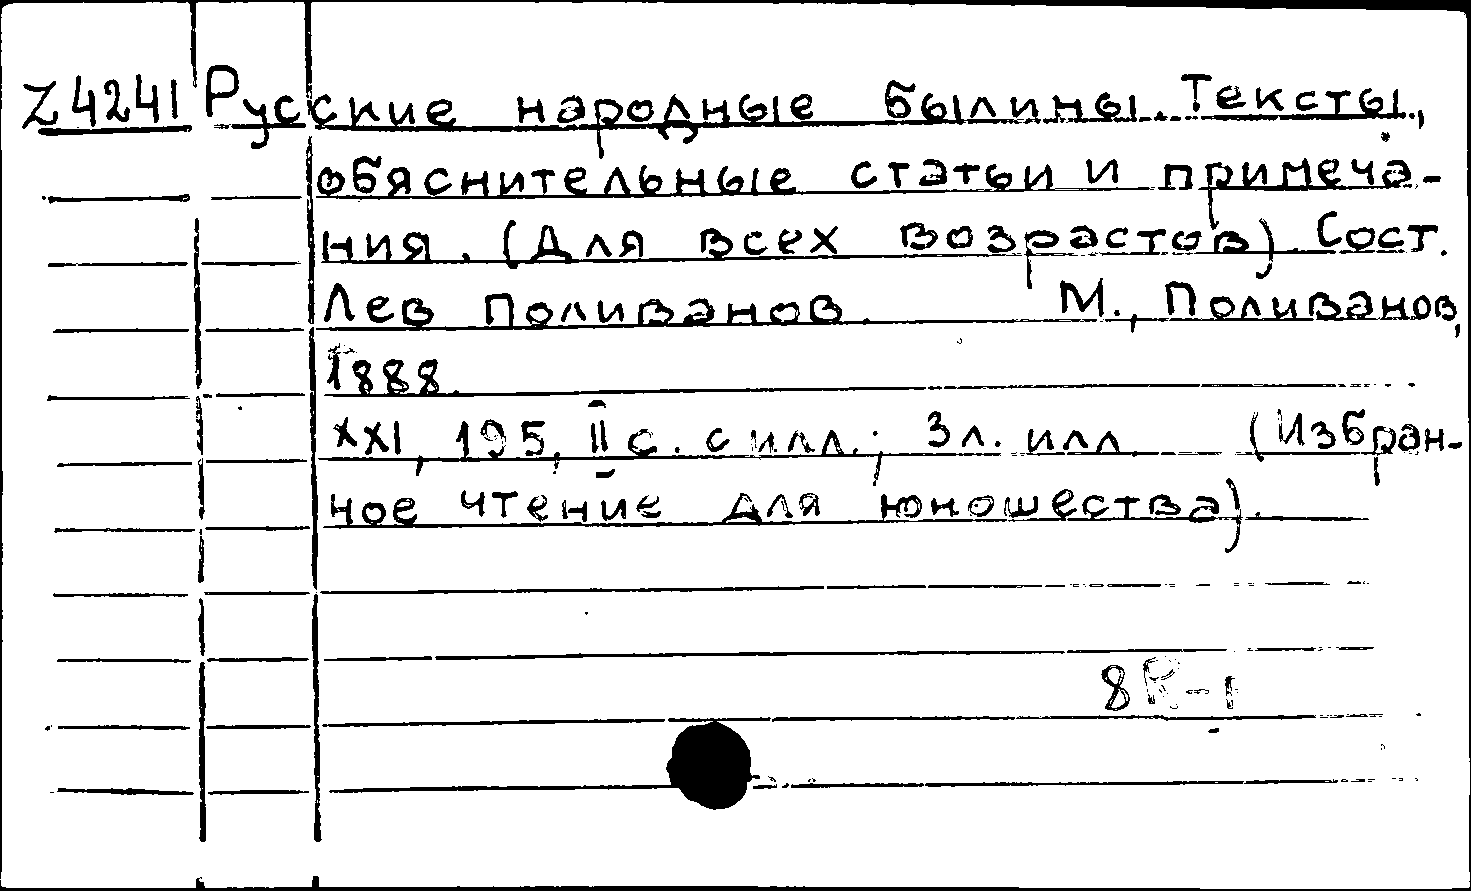 Z4241 Русские народные былины. Тексты,
обяснительные статьи и примеча-
ния. (Для всех возрастов). Сост.
Лев Поливанов. М., Поливанов,
1888.
XXI, 195, II с. с илл.; 3 л. илл. (Избран-
ное чтение для юношества).
8R-1